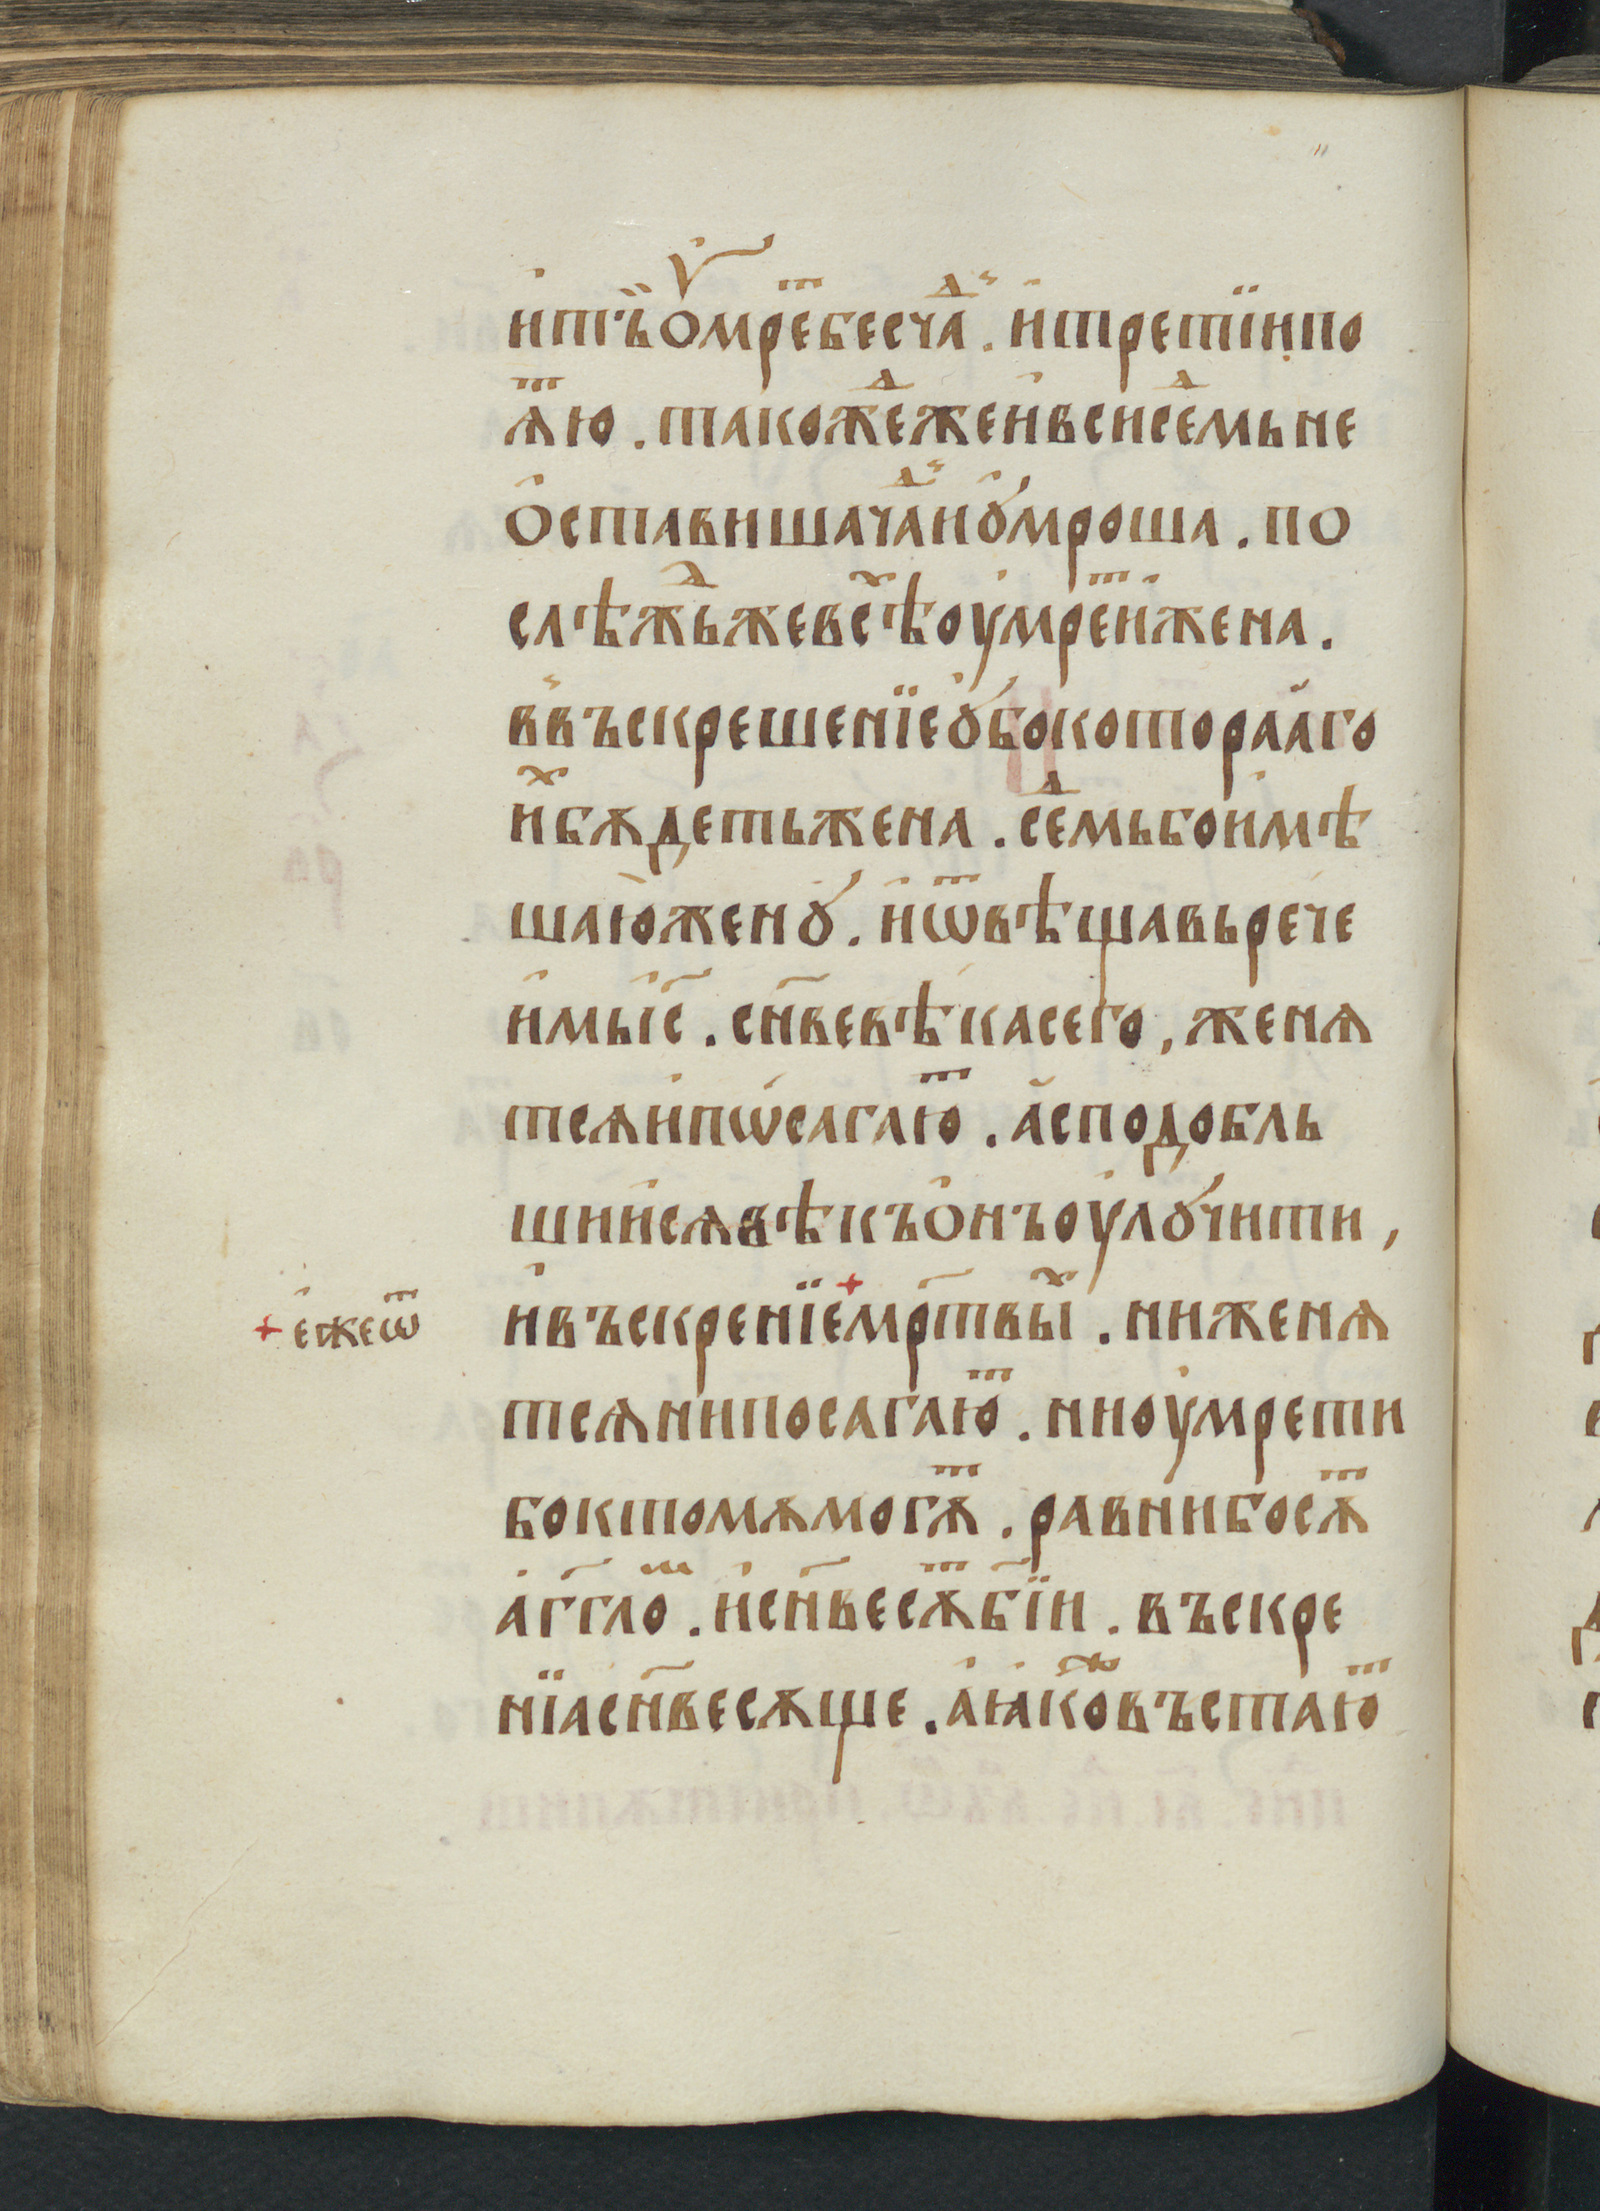 и҆ тъ̏ ѹ҆мре̄ⷮ бесчаⷣ . и҆ третїи по
ѧⷮ ю . такожеⷣ же и҆ вси семьⷣ не
о҆ставиша чаⷣ и҆ ꙋ҆мроша . по
слѣжⷣьже всѣⷯ оумреⷮ и҆ жена .
в въскрешенїе ꙋ҆бо котораа҆го
иⷯ бѫдеть жена . сеⷣмь бо имѣ
ша ю҆ женꙋ . и҆ ѿвѣщавь рече
и҆мь і҆с҃ . сн҃ве вѣка сего , женѧ
тсѧ и҆ пѡсагаюⷮ . а҆ сподобль
шиисѧ вѣкъ о҆нъ оулꙋчити ,
и҆ въскренїе + мр҃твыⷯ . ни женѧ
+ е҆же ѿ
тсѧ ни посагаюⷮ . ни оумрети
бо к томѫ могѫⷮ . равни бо сѫⷮ
а҆гг҃лоⷨ . и҆ сн҃ве сѫⷮ бж҃їи . въскре
нїа сн҃ве сѫще . а҆ ꙗ҆коⷤ въстаюⷮ